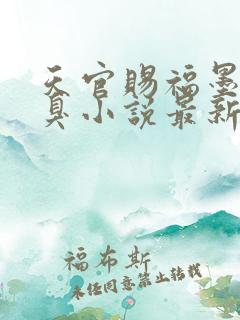 天官赐福墨
真小说最新
福布斯
未经同意禁止转载